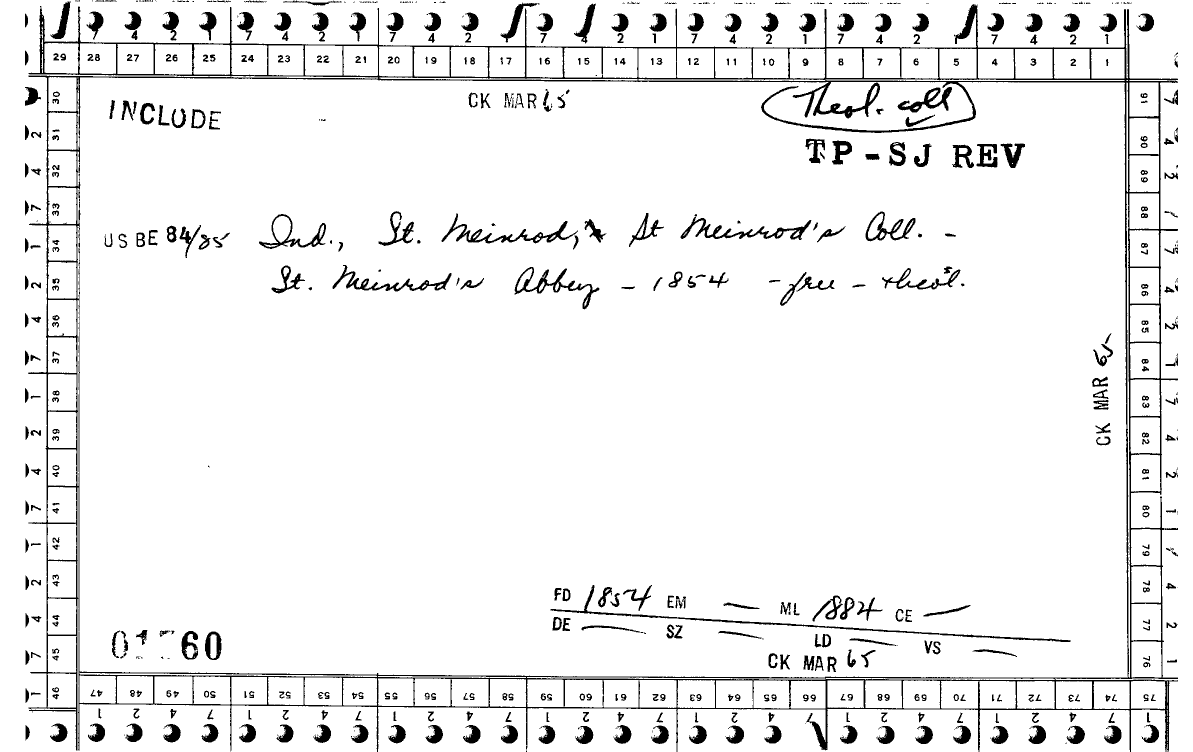 29 28 27 26 25 24 23 22 21 20 19 18 17 16 15 14 13 12 11 10 9 8 7 6 5 4 3 2 1
INCLUDE
CK MAR 65
Theol. coll
TP-SJ REV
US BE 84/85 Ind., St. Meinrod, St Meinrod's Coll. -
St. Meinrod's Abbey - 1854 - free - theol.
CK MAR 65
FD 1854 EM — ML 1884 CE —
DE — SZ — LD — VS —
CK MAR 65
60
30 31 32 33 34 35 36 37 38 39 40 41 42 43 44 45 46
91 90 89 88 87 86 85 84 83 82 81 80 79 78 77 76
47 48 49 50 51 52 53 54 55 56 57 58 59 60 61 62 63 64 65 66 67 68 69 70 71 72 73 74 75